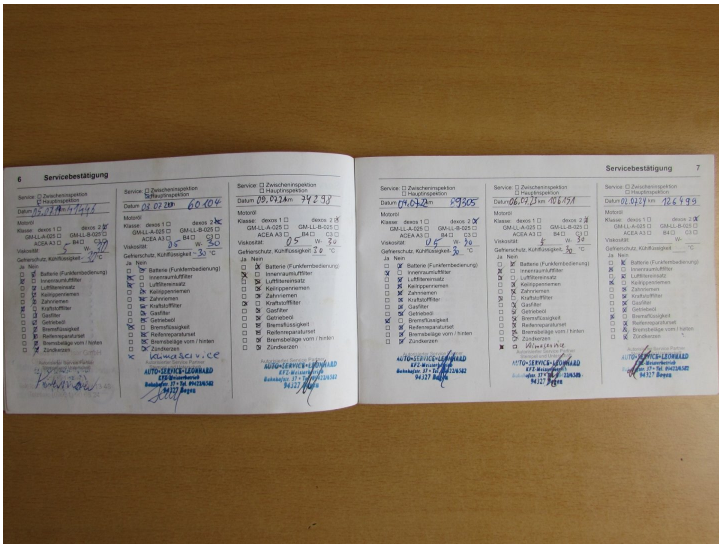 6 Servicebestätigung
Service: ☐ Zwischeninspektion
☒ Hauptinspektion
Datum km
Motoröl
Klasse: dexos 1 ☐ dexos 2 ☒
GM-LL-A-025 ☐ GM-LL-B-025 ☐
ACEA A3 ☐ B4 ☐ C3 ☐
Viskosität 5 W- 30
Gefrierschutz, Kühlflüssigkeit - °C
Ja Nein
Batterie (Funkfernbedienung)
Innenraumluftfilter
Luftfiltereinsatz
Keilrippenriemen
Zahnriemen
Kraftstofffilter
Gasfilter
Getriebeöl
Bremsflüssigkeit
Reifenreparaturset
Bremsbeläge vorn / hinten
Zündkerzen
Service: ☐ Zwischeninspektion
☒ Hauptinspektion
Datum km 60.104
Motoröl
Klasse: dexos 1 ☐ dexos 2 ☒
GM-LL-A-025 ☐ GM-LL-B-025 ☐
ACEA A3 ☐ B4 ☐ C3 ☐
Viskosität 05 W- 30
Gefrierschutz, Kühlflüssigkeit - 30 °C
Ja Nein
Batterie (Funkfernbedienung)
Innenraumluftfilter
Luftfiltereinsatz
Keilrippenriemen
Zahnriemen
Kraftstofffilter
Gasfilter
Getriebeöl
Bremsflüssigkeit
Reifenreparaturset
Bremsbeläge vorn / hinten
Zündkerzen
x Klimaservice
AUTO-SERVICE-LEONHARD
KFZ-Meisterbetrieb
Bahnhofstr. 37 • Tel. 09422/6382
94327 Bogen
Service: ☐ Zwischeninspektion
☐ Hauptinspektion
Datum 09.07.21 km 74298
Motoröl
Klasse: dexos 1 ☐ dexos 2 ☒
GM-LL-A-025 ☐ GM-LL-B-025 ☐
ACEA A3 ☐ B4 ☐ C3 ☐
Viskosität 05 W- 30
Gefrierschutz, Kühlflüssigkeit 30 °C
Ja Nein
Batterie (Funkfernbedienung)
Innenraumluftfilter
Luftfiltereinsatz
Keilrippenriemen
Zahnriemen
Kraftstofffilter
Gasfilter
Getriebeöl
Bremsflüssigkeit
Reifenreparaturset
Bremsbeläge vorn / hinten
Zündkerzen
AUTO-SERVICE-LEONHARD
KFZ-Meisterbetrieb
Bahnhofstr. 37 • Tel. 09422/6382
94327 Bogen
Servicebestätigung 7
Service: ☐ Zwischeninspektion
☐ Hauptinspektion
Datum km 89305
Motoröl
Klasse: dexos 1 ☐ dexos 2 ☒
GM-LL-A-025 ☐ GM-LL-B-025 ☐
ACEA A3 ☐ B4 ☐ C3 ☐
Viskosität 05 W- 30
Gefrierschutz, Kühlflüssigkeit 30 °C
Ja Nein
Batterie (Funkfernbedienung)
Innenraumluftfilter
Luftfiltereinsatz
Keilrippenriemen
Zahnriemen
Kraftstofffilter
Gasfilter
Getriebeöl
Bremsflüssigkeit
Reifenreparaturset
Bremsbeläge vorn / hinten
Zündkerzen
AUTO-SERVICE-LEONHARD
KFZ-Meisterbetrieb
Bahnhofstr. 37 • Tel. 09422/6382
94327 Bogen
Service: ☐ Zwischeninspektion
☐ Hauptinspektion
Datum 06.07.23 km 106151
Motoröl
Klasse: dexos 1 ☐ dexos 2 ☒
GM-LL-A-025 ☐ GM-LL-B-025 ☐
ACEA A3 ☐ B4 ☐ C3 ☐
Viskosität W- 30
Gefrierschutz, Kühlflüssigkeit 30 °C
Ja Nein
Batterie (Funkfernbedienung)
Innenraumluftfilter
Luftfiltereinsatz
Keilrippenriemen
Zahnriemen
Kraftstofffilter
Gasfilter
Getriebeöl
Bremsflüssigkeit
Reifenreparaturset
Bremsbeläge vorn / hinten
Zündkerzen
Klimaservice
AUTO-SERVICE-LEONHARD
KFZ-Meisterbetrieb
94327 Bogen
Service: ☐ Zwischeninspektion
☐ Hauptinspektion
Datum 02.07.24 km 126499
Motoröl
Klasse: dexos 1 ☐ dexos 2 ☒
GM-LL-A-025 ☐ GM-LL-B-025 ☐
ACEA A3 ☐ B4 ☐ C3 ☐
Viskosität W-
Gefrierschutz, Kühlflüssigkeit °C
Ja Nein
Batterie (Funkfernbedienung)
Innenraumluftfilter
Luftfiltereinsatz
Keilrippenriemen
Zahnriemen
Kraftstofffilter
Gasfilter
Getriebeöl
Bremsflüssigkeit
Reifenreparaturset
Bremsbeläge vorn / hinten
Zündkerzen
AUTO-SERVICE-LEONHARD
KFZ-Meisterbetrieb
94327 Bogen